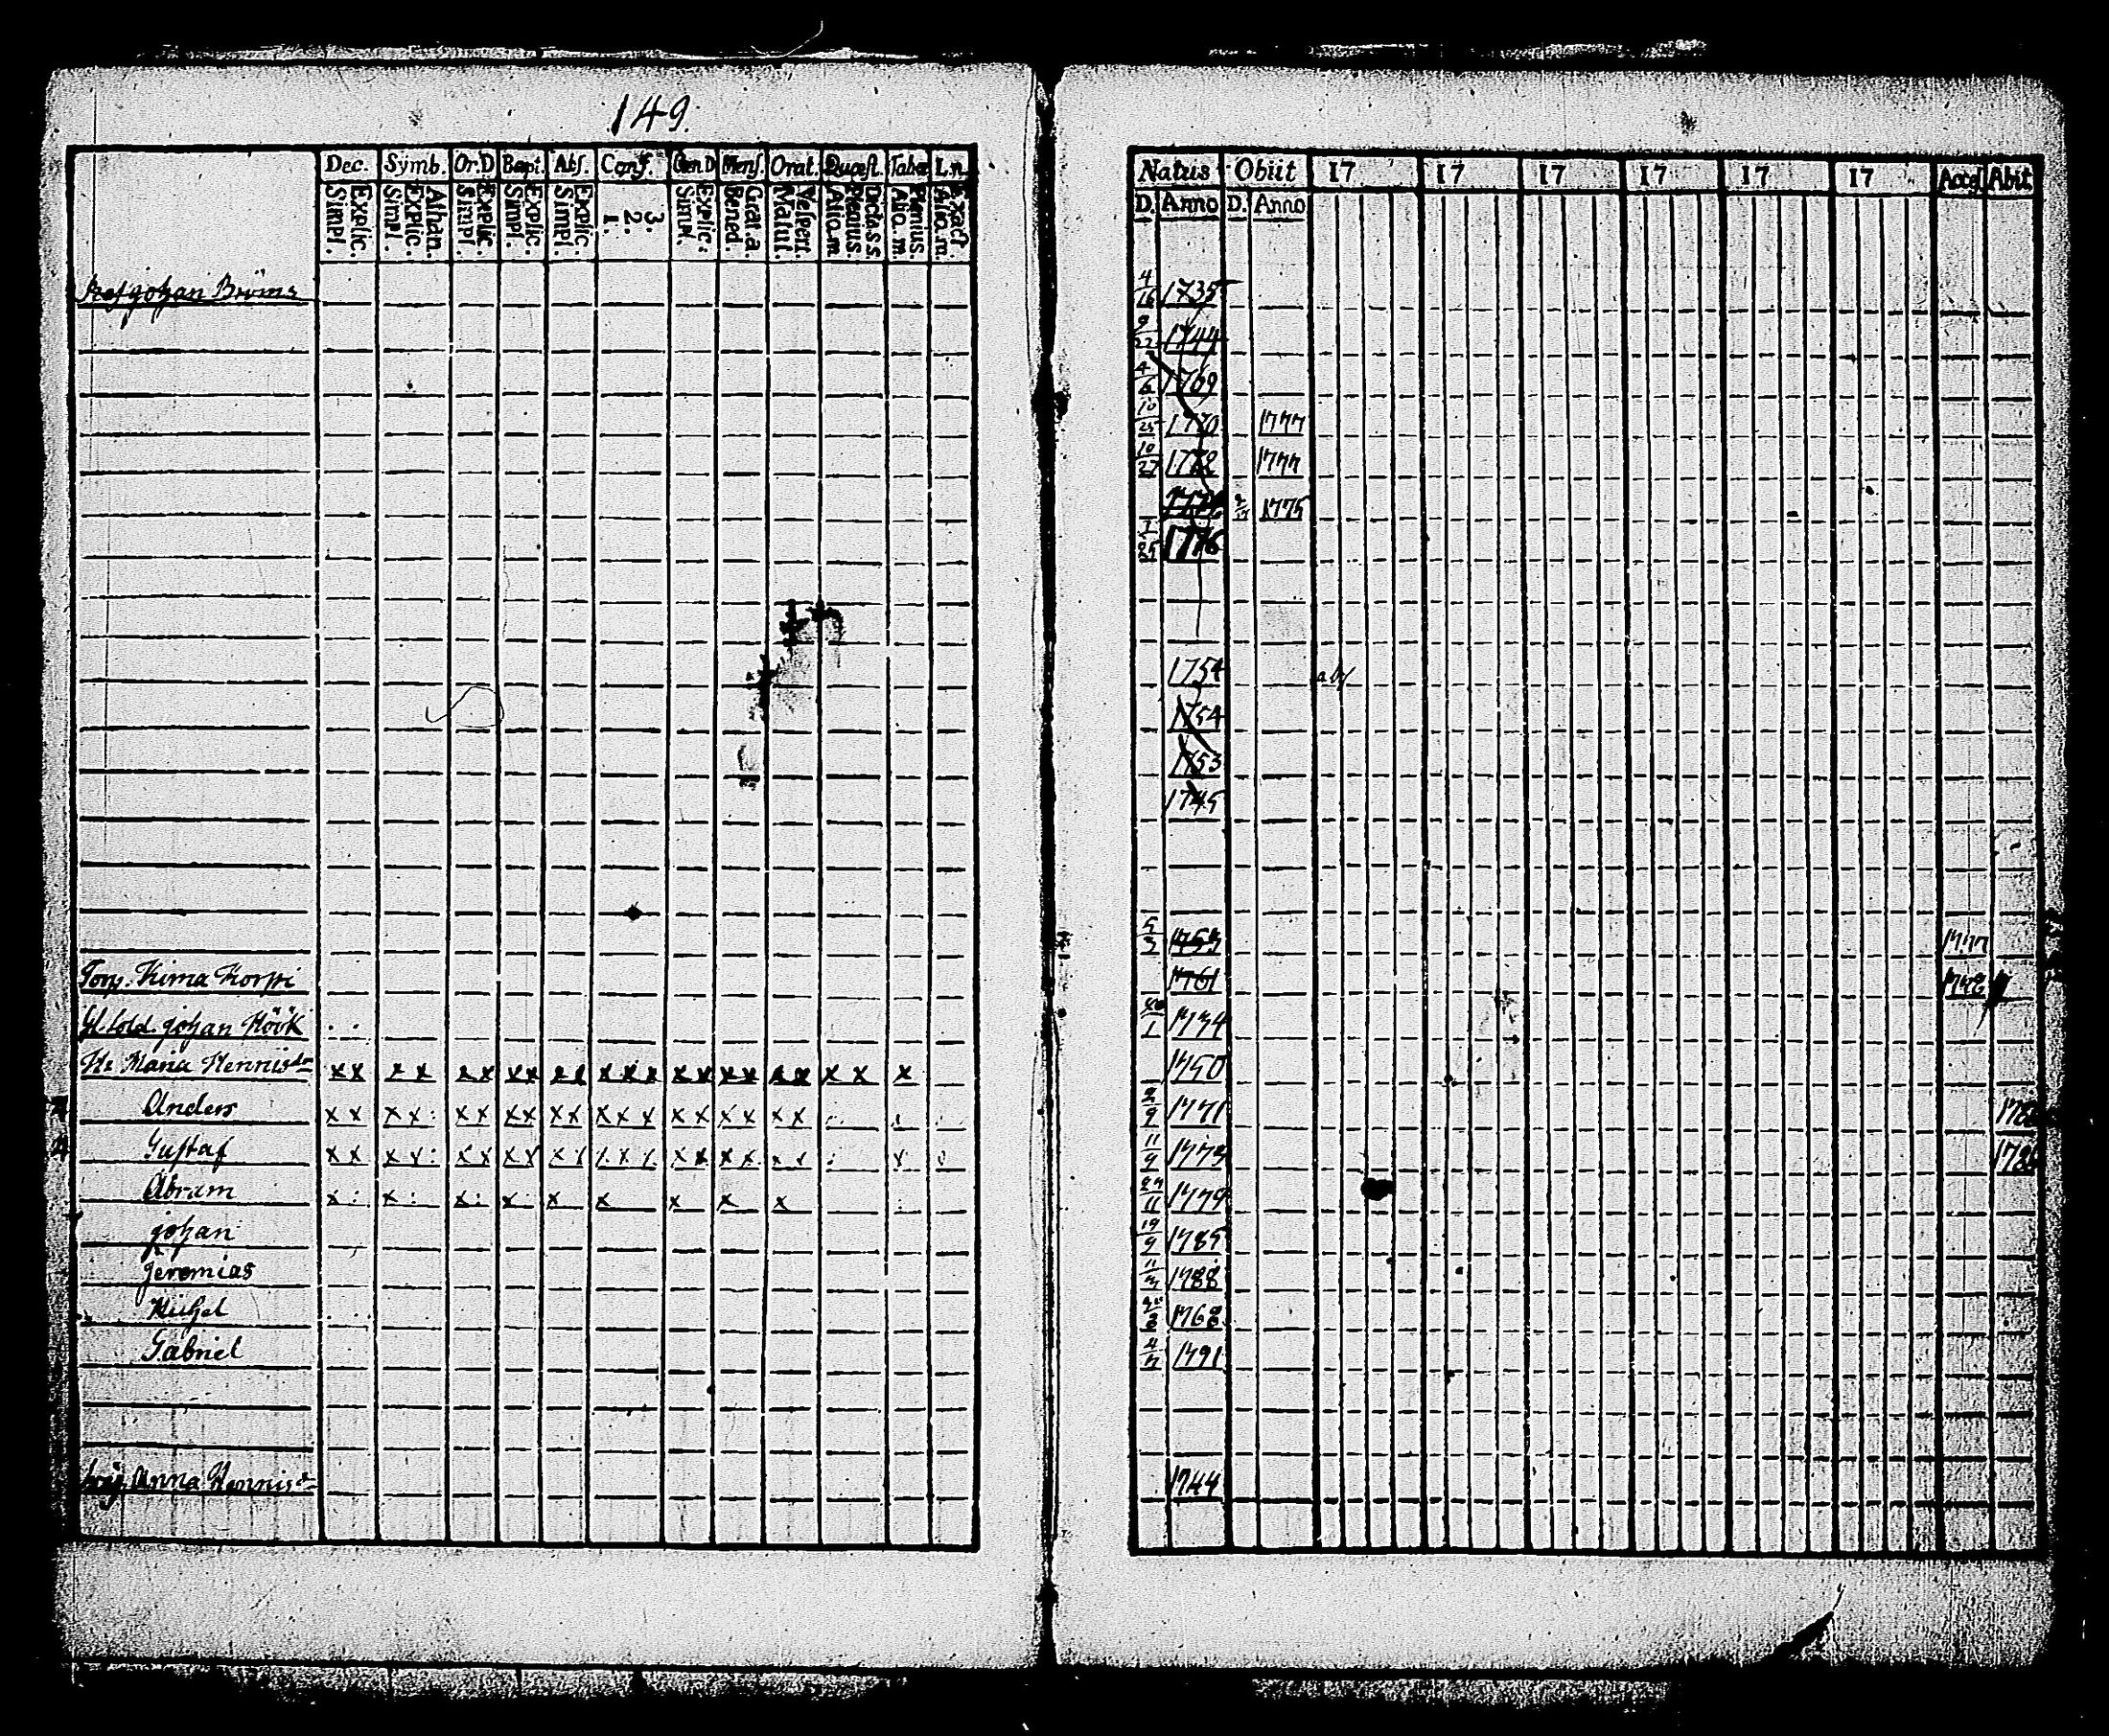 149.
Dec. Symb. Or.D Bapt. Abs. Conf. Cœn.D Mens. Orat. Quæst. Tabœ L.n.
Explic. Simpl. Athan. Explic. Simpl. Explic. Simpl. Explic. Simpl. Explic. Simpl. 3. 2. 1. Explic. Simpl. Grat.a. Bened. Vespert. Matut. Dicta.s.s. Plenius. Alio.m. Plenius. Alio.m. Exact Alio.m.
johan Bröms
Torp. Kima Korpi
johan Höök
H: Maria Hennis dr x x x x x x x x x x x x x x x x x x x x x x
Anders x x x x : x x x x x x x x x x x x x x x
Gustaf x x x x : x x x x x x x x x x x x x x x
Abram x : x : x : x : x x x x x
johan
Jeremias
Michel
Gabriel
Anna Hennis dr
Natus Obiit 17 17 17 17 17 17 Acces Abit
D. Anno D. Anno
4/16 1735
9/22 1744
4/6 1769
10/25 1770 1777
10/27 1772 1777
1775
1776
1754
1754
1753
1745
5/3 1753 1777
1761
1734
1750
2/9 1771
11/9 1773
1779
19/9 1785
11/3 1788
1768
1791
1744